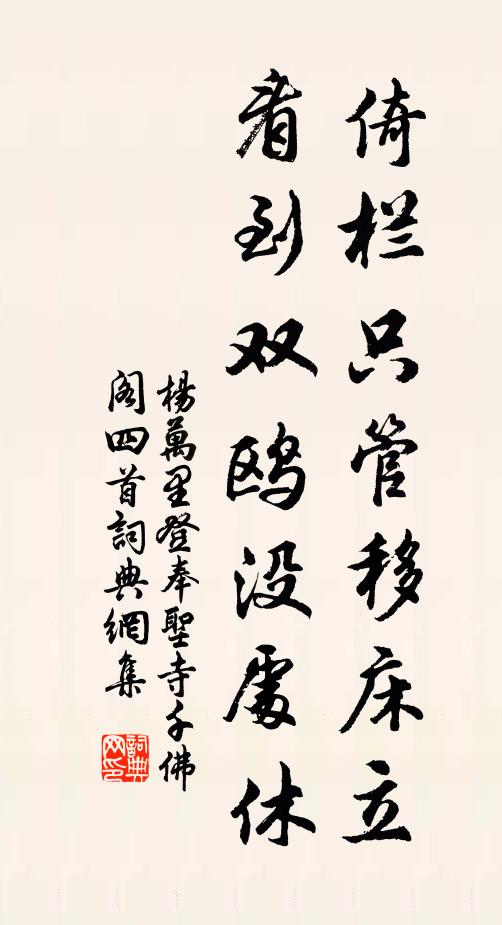 倚栏只管移床立
看到双鸥没處休
楊萬里登奉聖寺千佛
閣四首詞典網集
詞典
网印